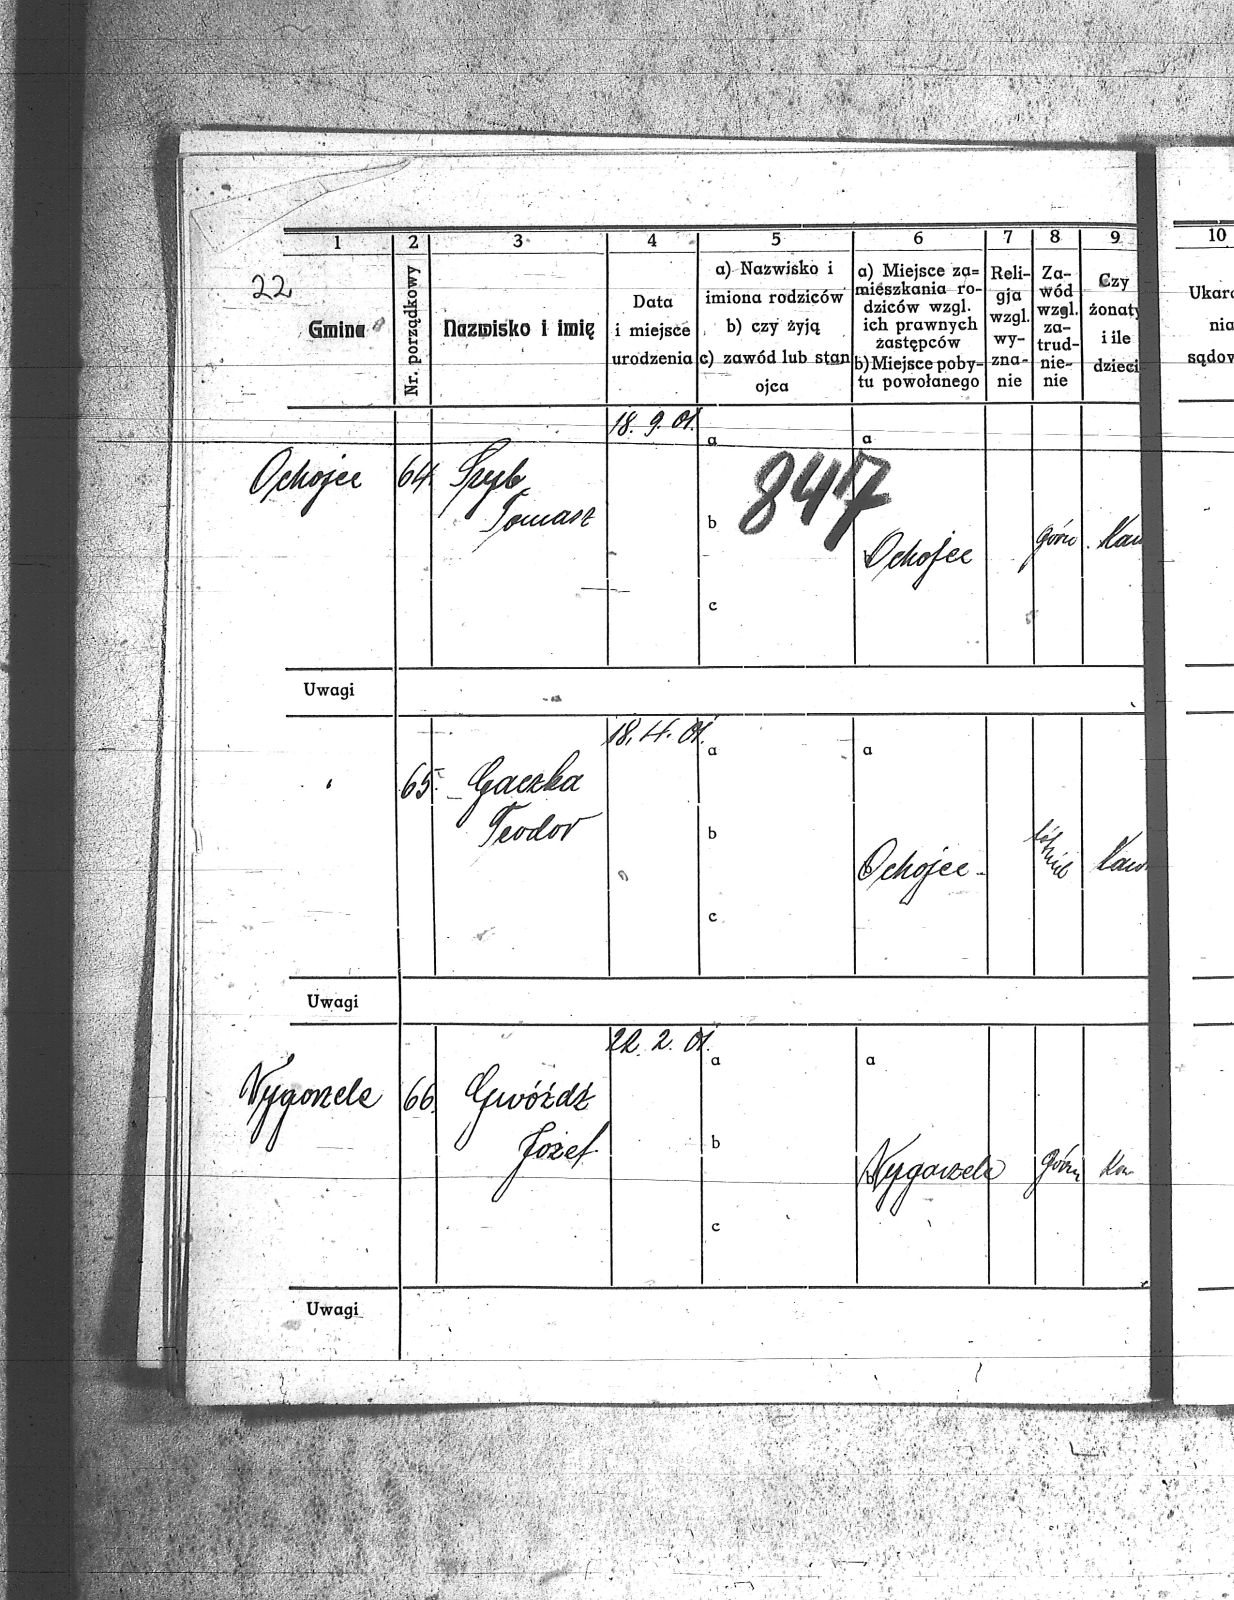 1 2 3 4 5 6 7 8 9 10
22
Gmina
Nr. porządkowy
Nazwisko i imię
Data
i miejsce
urodzenia
a) Nazwisko i
imiona rodziców
b) czy żyją
c) zawód lub stan
ojca
a) Miejsce za=
mieszkania ro-
dziców wzgl.
ich prawnych
zastępców
b) Miejsce poby-
tu powołanego
Reli-
gja
wzgl.
wy-
zna-
nie
Za-
wód
wzgl.
za-
trud-
nie-
nie
Czy
żonaty
i ile
dzieci
Ukara
nia
sądow
18. 9. 01.
a a
Ochojec 64. Szyb
Tomasz
847
b
Ochojec górn. Kaw
c
Uwagi
18. 4. 01.
a a
65. Gaczka
Teodor
b
Ochojec Kaw
c
Uwagi
22. 2. 01.
a a
Wygorzele 66. Gwóźdź
Józef
b
Wygorzele górn Kaw
c
Uwagi